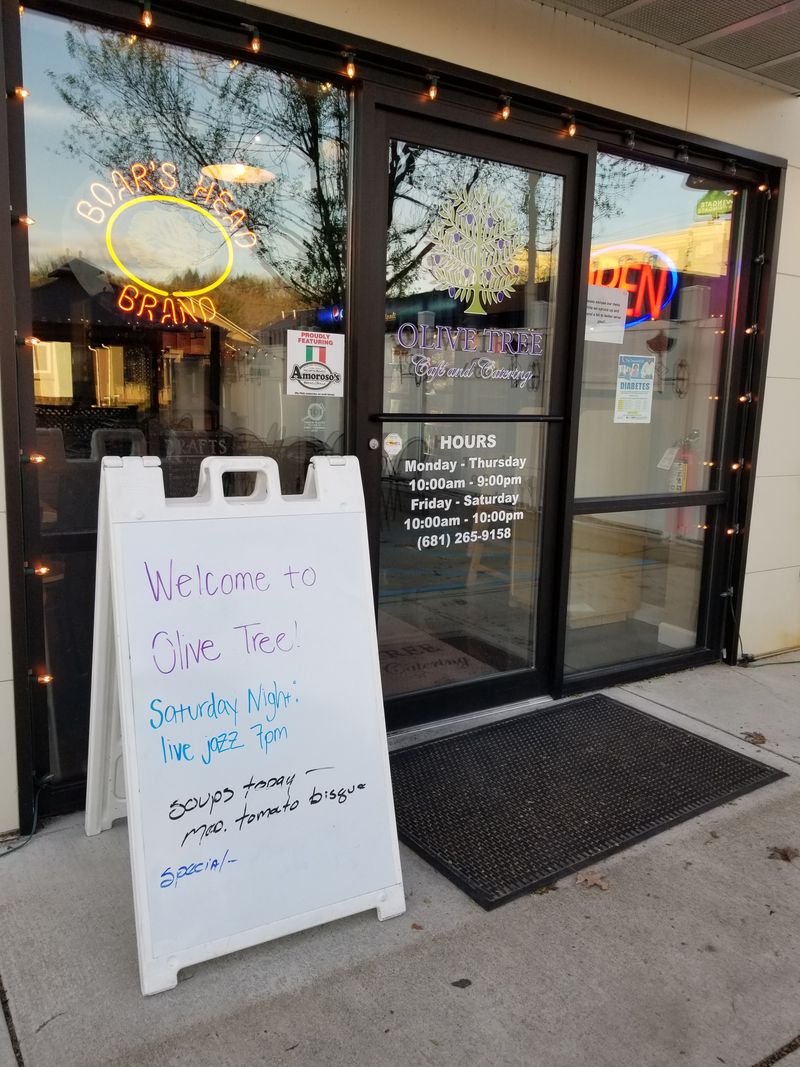 BOAR'S HEAD
BRAND
PROUDLY
FEATURING
Amoroso's
OLIVE TREE
Café and Catering
HOURS
Monday - Thursday
10:00am - 9:00pm
Friday - Saturday
10:00am - 10:00pm
(681) 265-9158
OPEN
DIABETES
Welcome to
Olive Tree!
Saturday Night:
live jazz 7pm
Soups today —
Med. tomato bisque
Special -
TREE
Catering